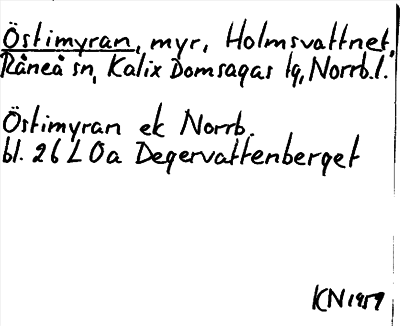 Östimyran, myr, Holmsvattnet,
Råneå sn, Kalix Domsagas tg, Norrb. l.
Östimyran ek Norrb.
bl. 26 L 0a Degervattenberget
KN 1959